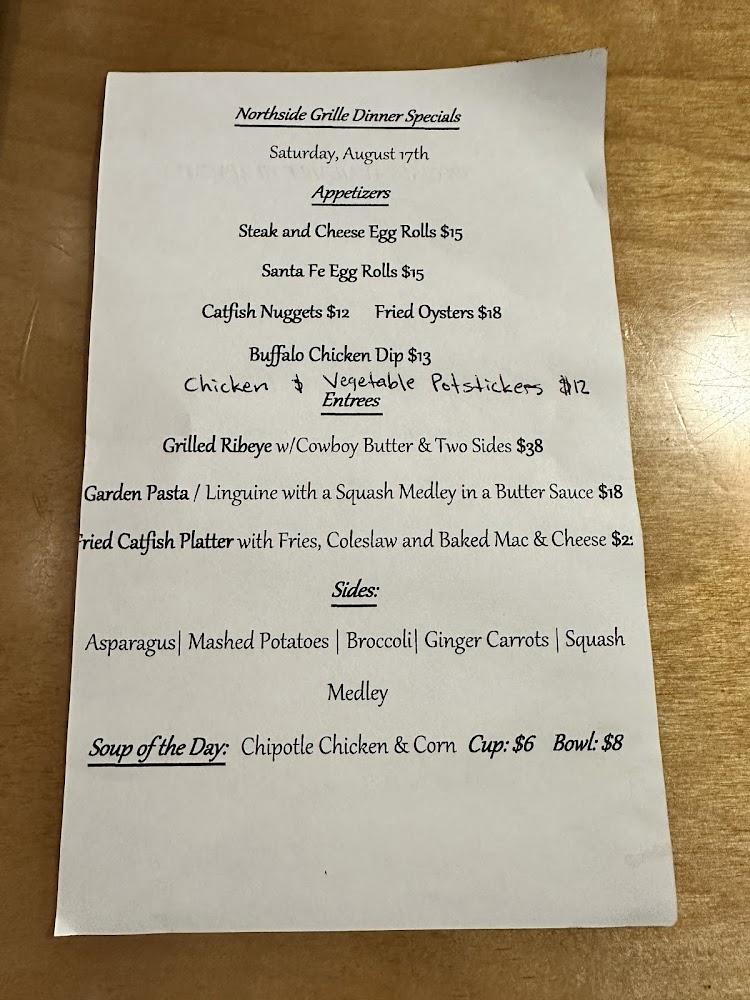 Northside Grille Dinner Specials
Saturday, August 17th
Appetizers
Steak and Cheese Egg Rolls $15
Santa Fe Egg Rolls $15
Catfish Nuggets $12 Fried Oysters $18
Buffalo Chicken Dip $13
Chicken & Vegetable Potstickers $12
Entrees
Grilled Ribeye w/Cowboy Butter & Two Sides $38
Garden Pasta / Linguine with a Squash Medley in a Butter Sauce $18
ried Catfish Platter with Fries, Coleslaw and Baked Mac & Cheese $2
Sides:
Asparagus| Mashed Potatoes | Broccoli| Ginger Carrots | Squash
Medley
Soup of the Day: Chipotle Chicken & Corn Cup: $6 Bowl: $8